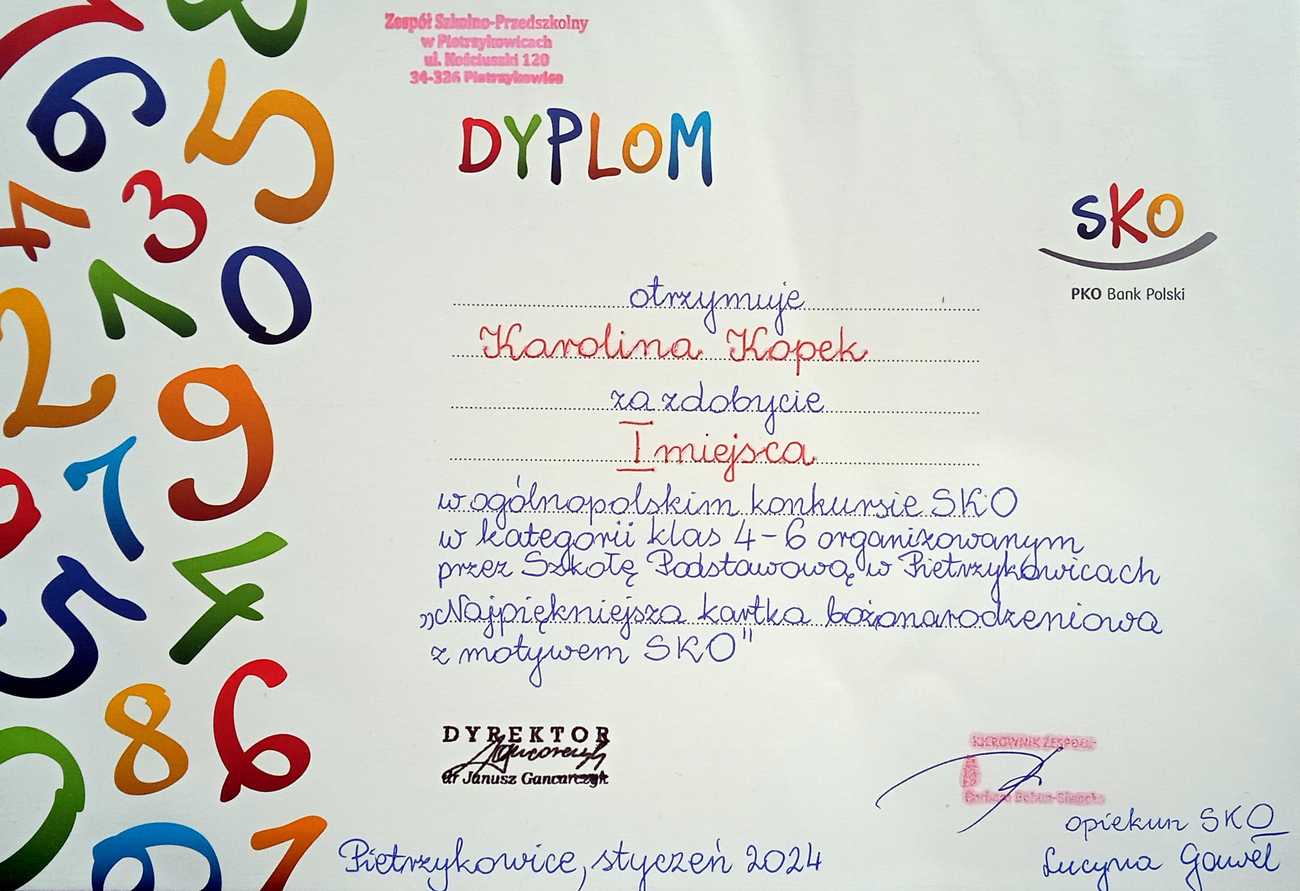 Zespół Szkolno-Przedszkolny
w Pietrzykowicach
ul. Kościuszki 120
34-326 Pietrzykowice
DYPLOM
SKO
PKO Bank Polski
otrzymuje
Karolina Kopek
za zdobycie
I miejsca
w ogólnopolskim konkursie SKO
w kategorii klas 4-6 organizowanym
przez Szkołę Podstawową w Pietrzykowicach
„Najpiękniejsza kartka bożonarodzeniowa
z motywem SKO"
DYREKTOR
dr Janusz Gancarczyk
KIEROWNIK ZESPOŁU
opiekun SKO
Lucyna Gaweł
Pietrzykowice, styczeń 2024